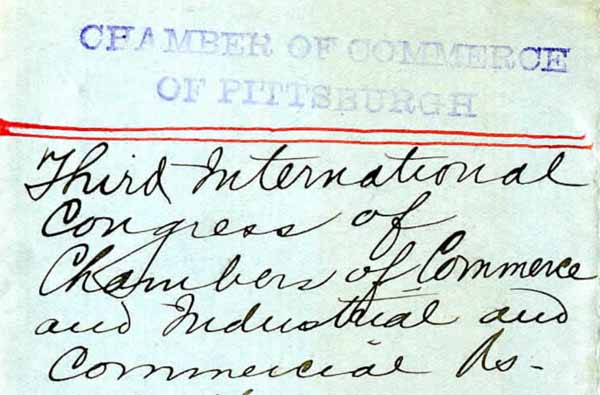 CHAMBER OF COMMERCE
OF PITTSBURGH
Third International
Congress of
Chambers of Commerce
and Industrial and
Commercial As-